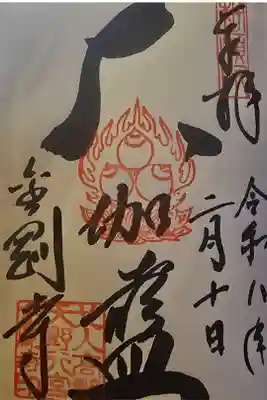 奉拝
令和八年
二月十日
大伽藍
金剛寺